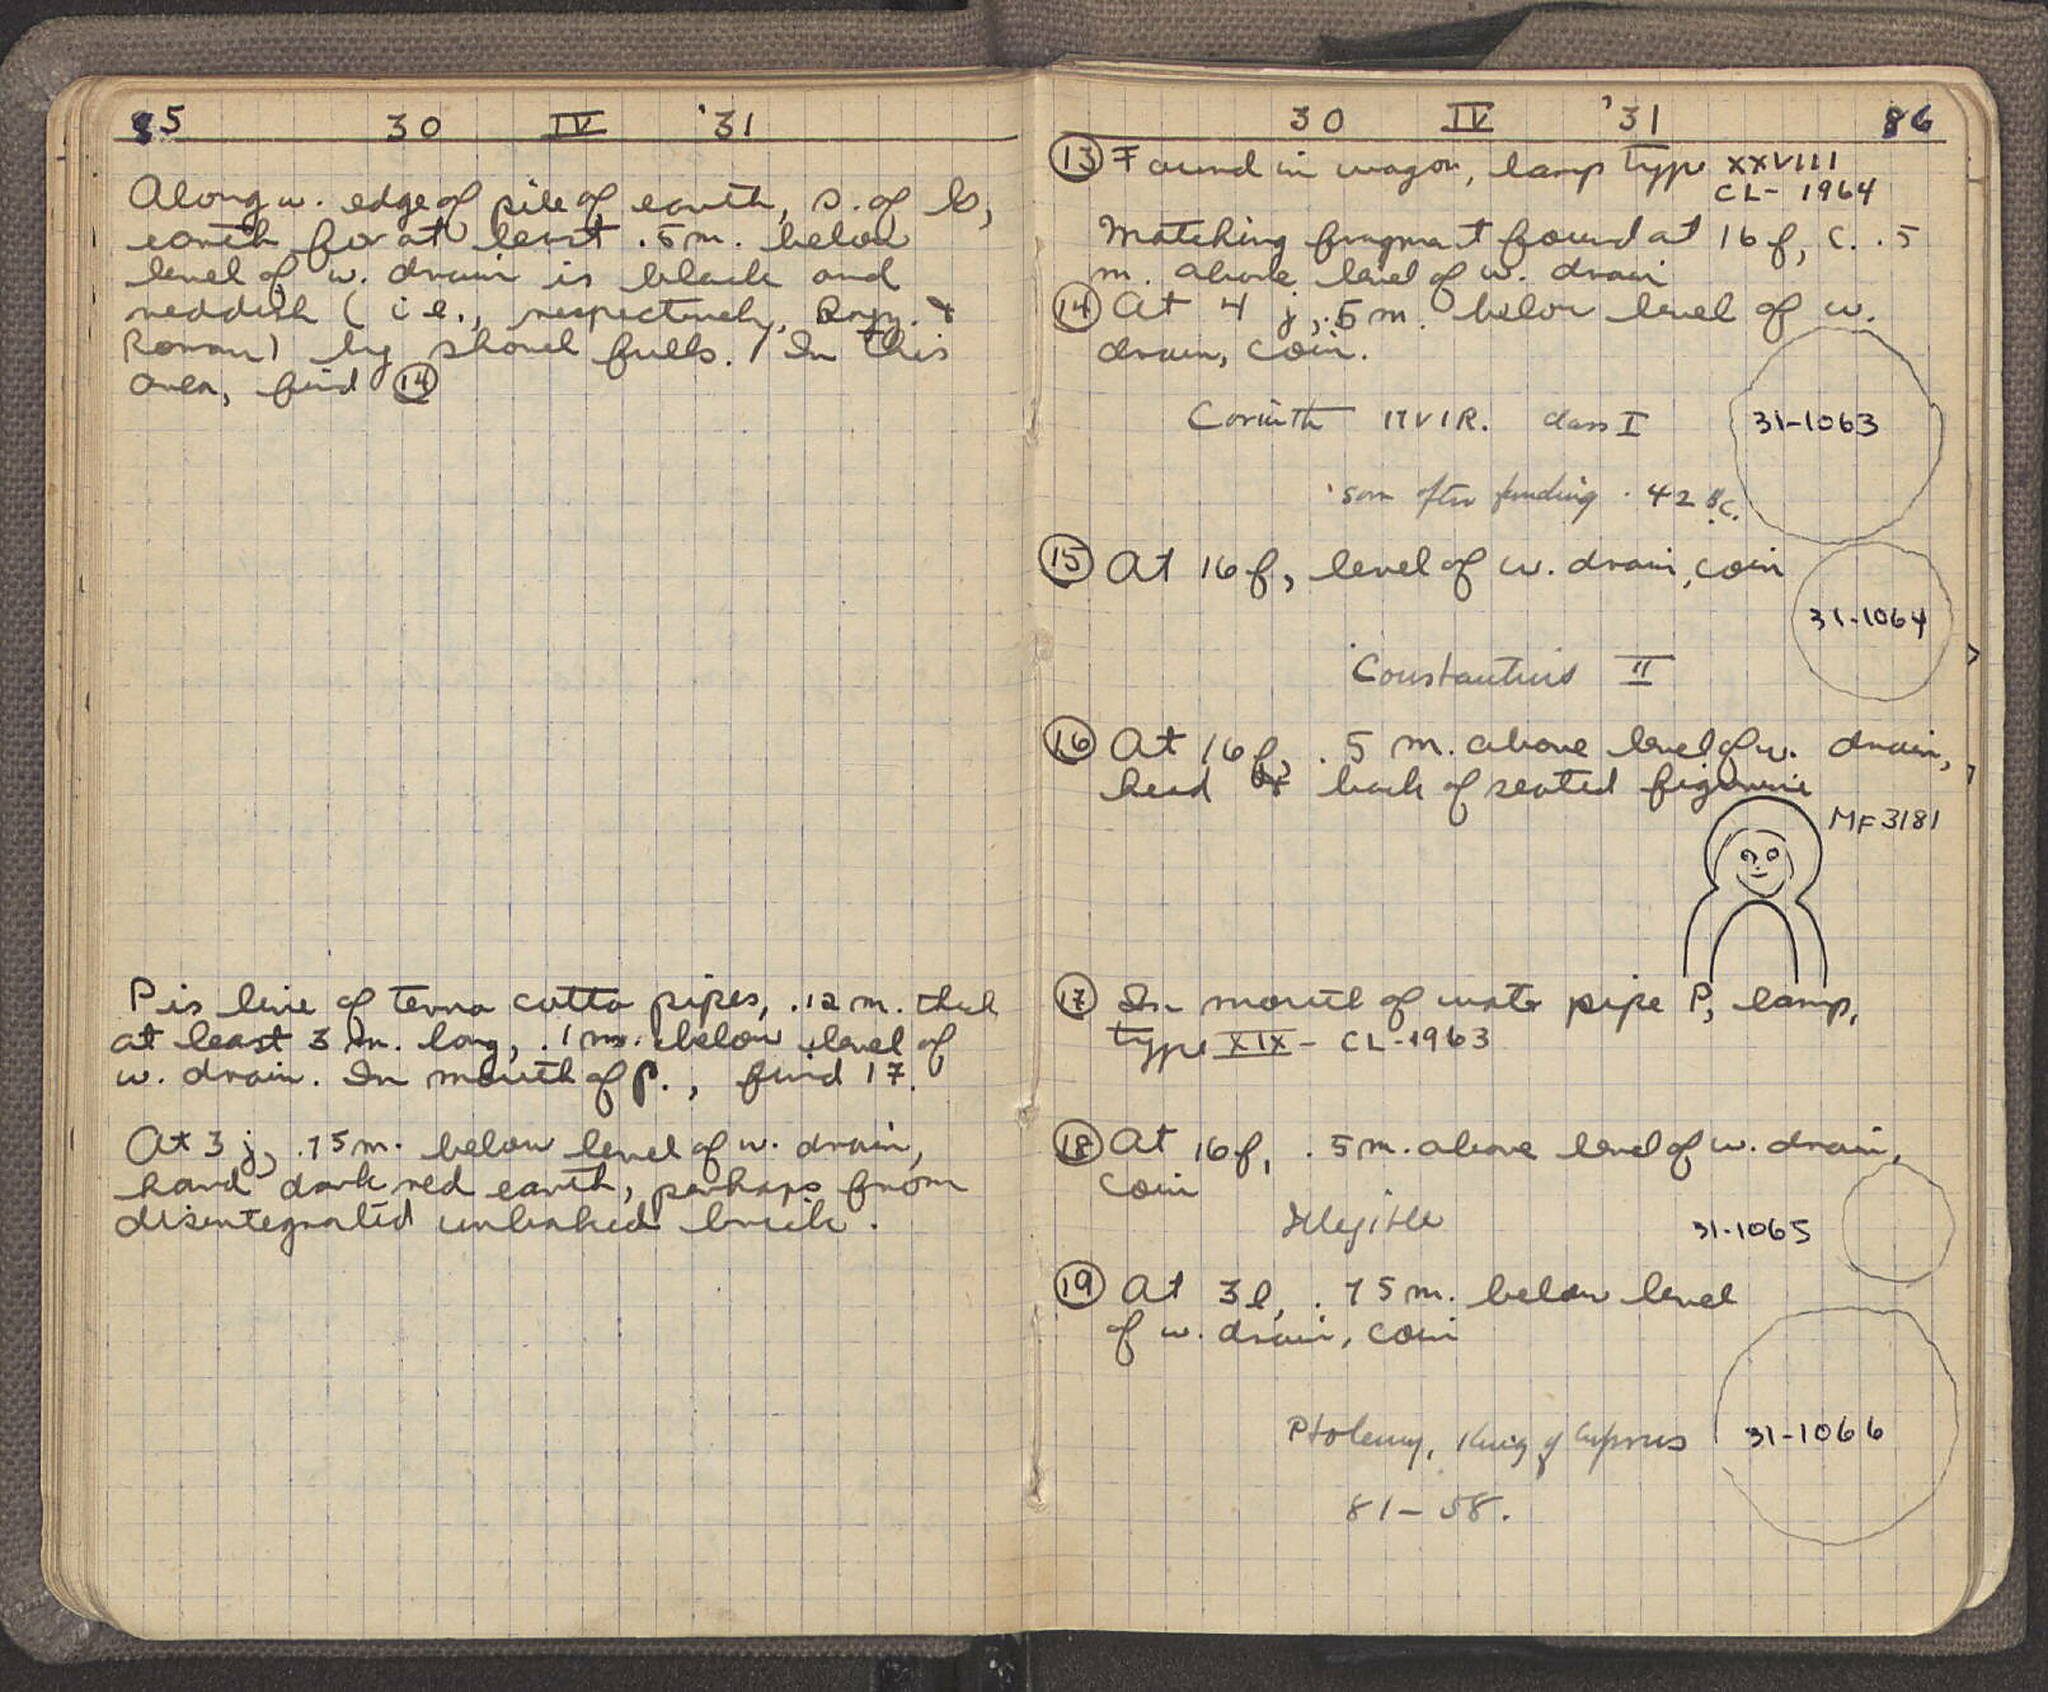 85 30 IV '31
Along w. edge of pile of earth, s. of b,
earth for at least .5 m. below
level of w. drain is black and
reddish (i.e., respectively, Byz. &
Roman) by shovel fulls. In this
area, find 14
P is line of terra cotta pipes, .12 m. thick
at least 3 m. long, .1 m. below level of
w. drain. In mouth of P., find 17.
At 3 j, .75 m. below level of w. drain,
hard dark red earth, perhaps from
disintegrated unbaked brick.
30 IV '31 86
13 Found in wagon, lamp type XXVIII
CL- 1964
Matching fragment found at 16 f, c. .5
m. above level of w. drain
14 At 4 j, .5 m. below level of w.
drain, coin.
Corinth IIVIR. class I
31-1063
soon after founding . 42 B.C.
15 At 16 f, level of w. drain, coin
31-1064
Constantius II
16 At 16 f, .5 m. above level of w. drain,
head & back of seated figurine
MF3181
17 In mouth of water pipe P, lamp,
type XIX - CL-1963
18 At 16 f, .5 m. above level of w. drain,
coin
Illegible 31-1065
19 At 3 l, .75 m. below level
of w. drain, coin
Ptolemy, King of Cyprus 31-1066
81-58.